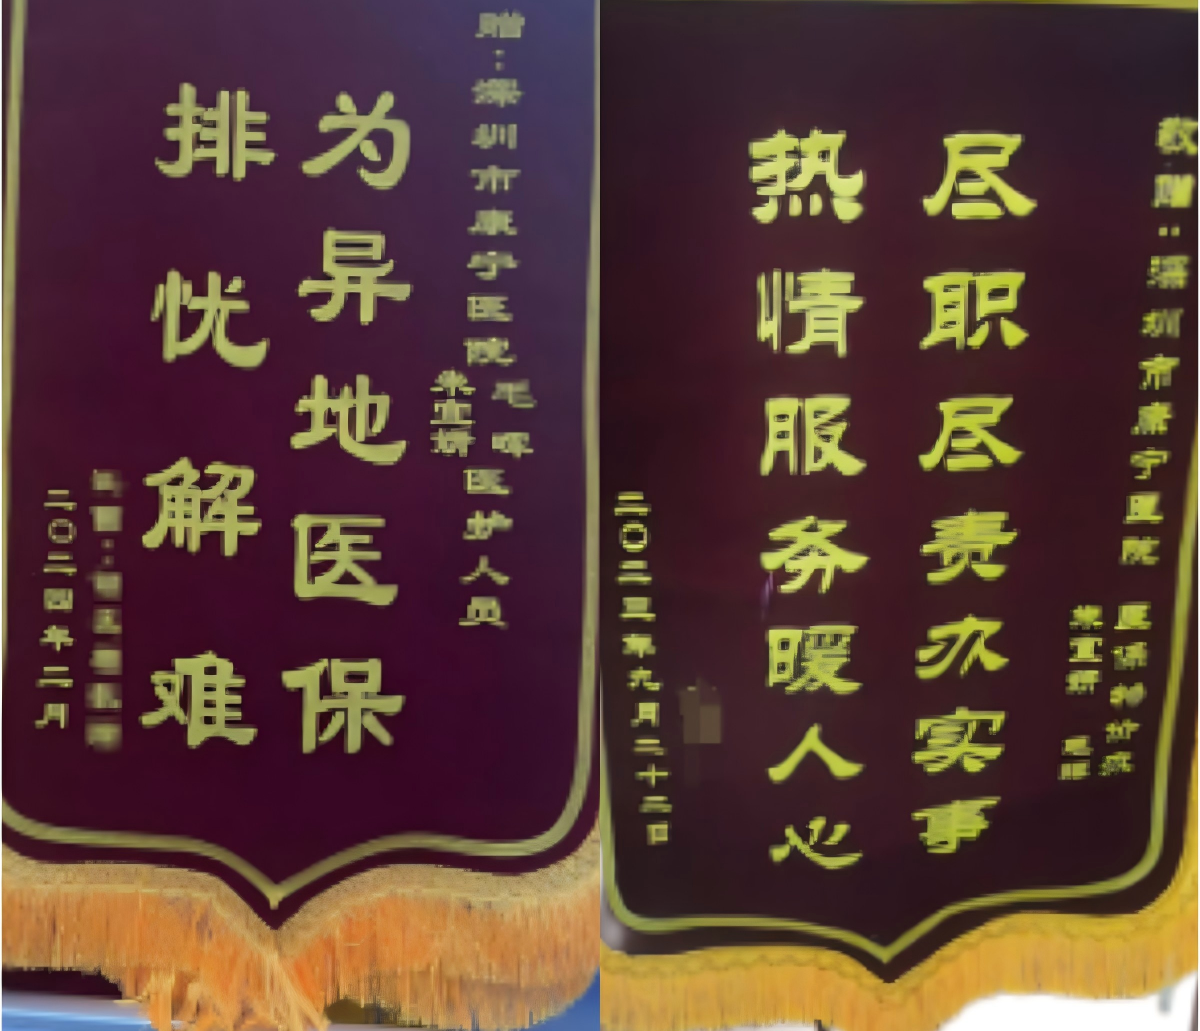 赠：深圳市康宁医院
毛晖
朱宜妍
医护人员
为异地医保
排忧解难
二〇二四年二月
敬赠：深圳市康宁医院
朱宜妍
尽职尽责办实事
热情服务暖人心
二〇二三年九月二十二日